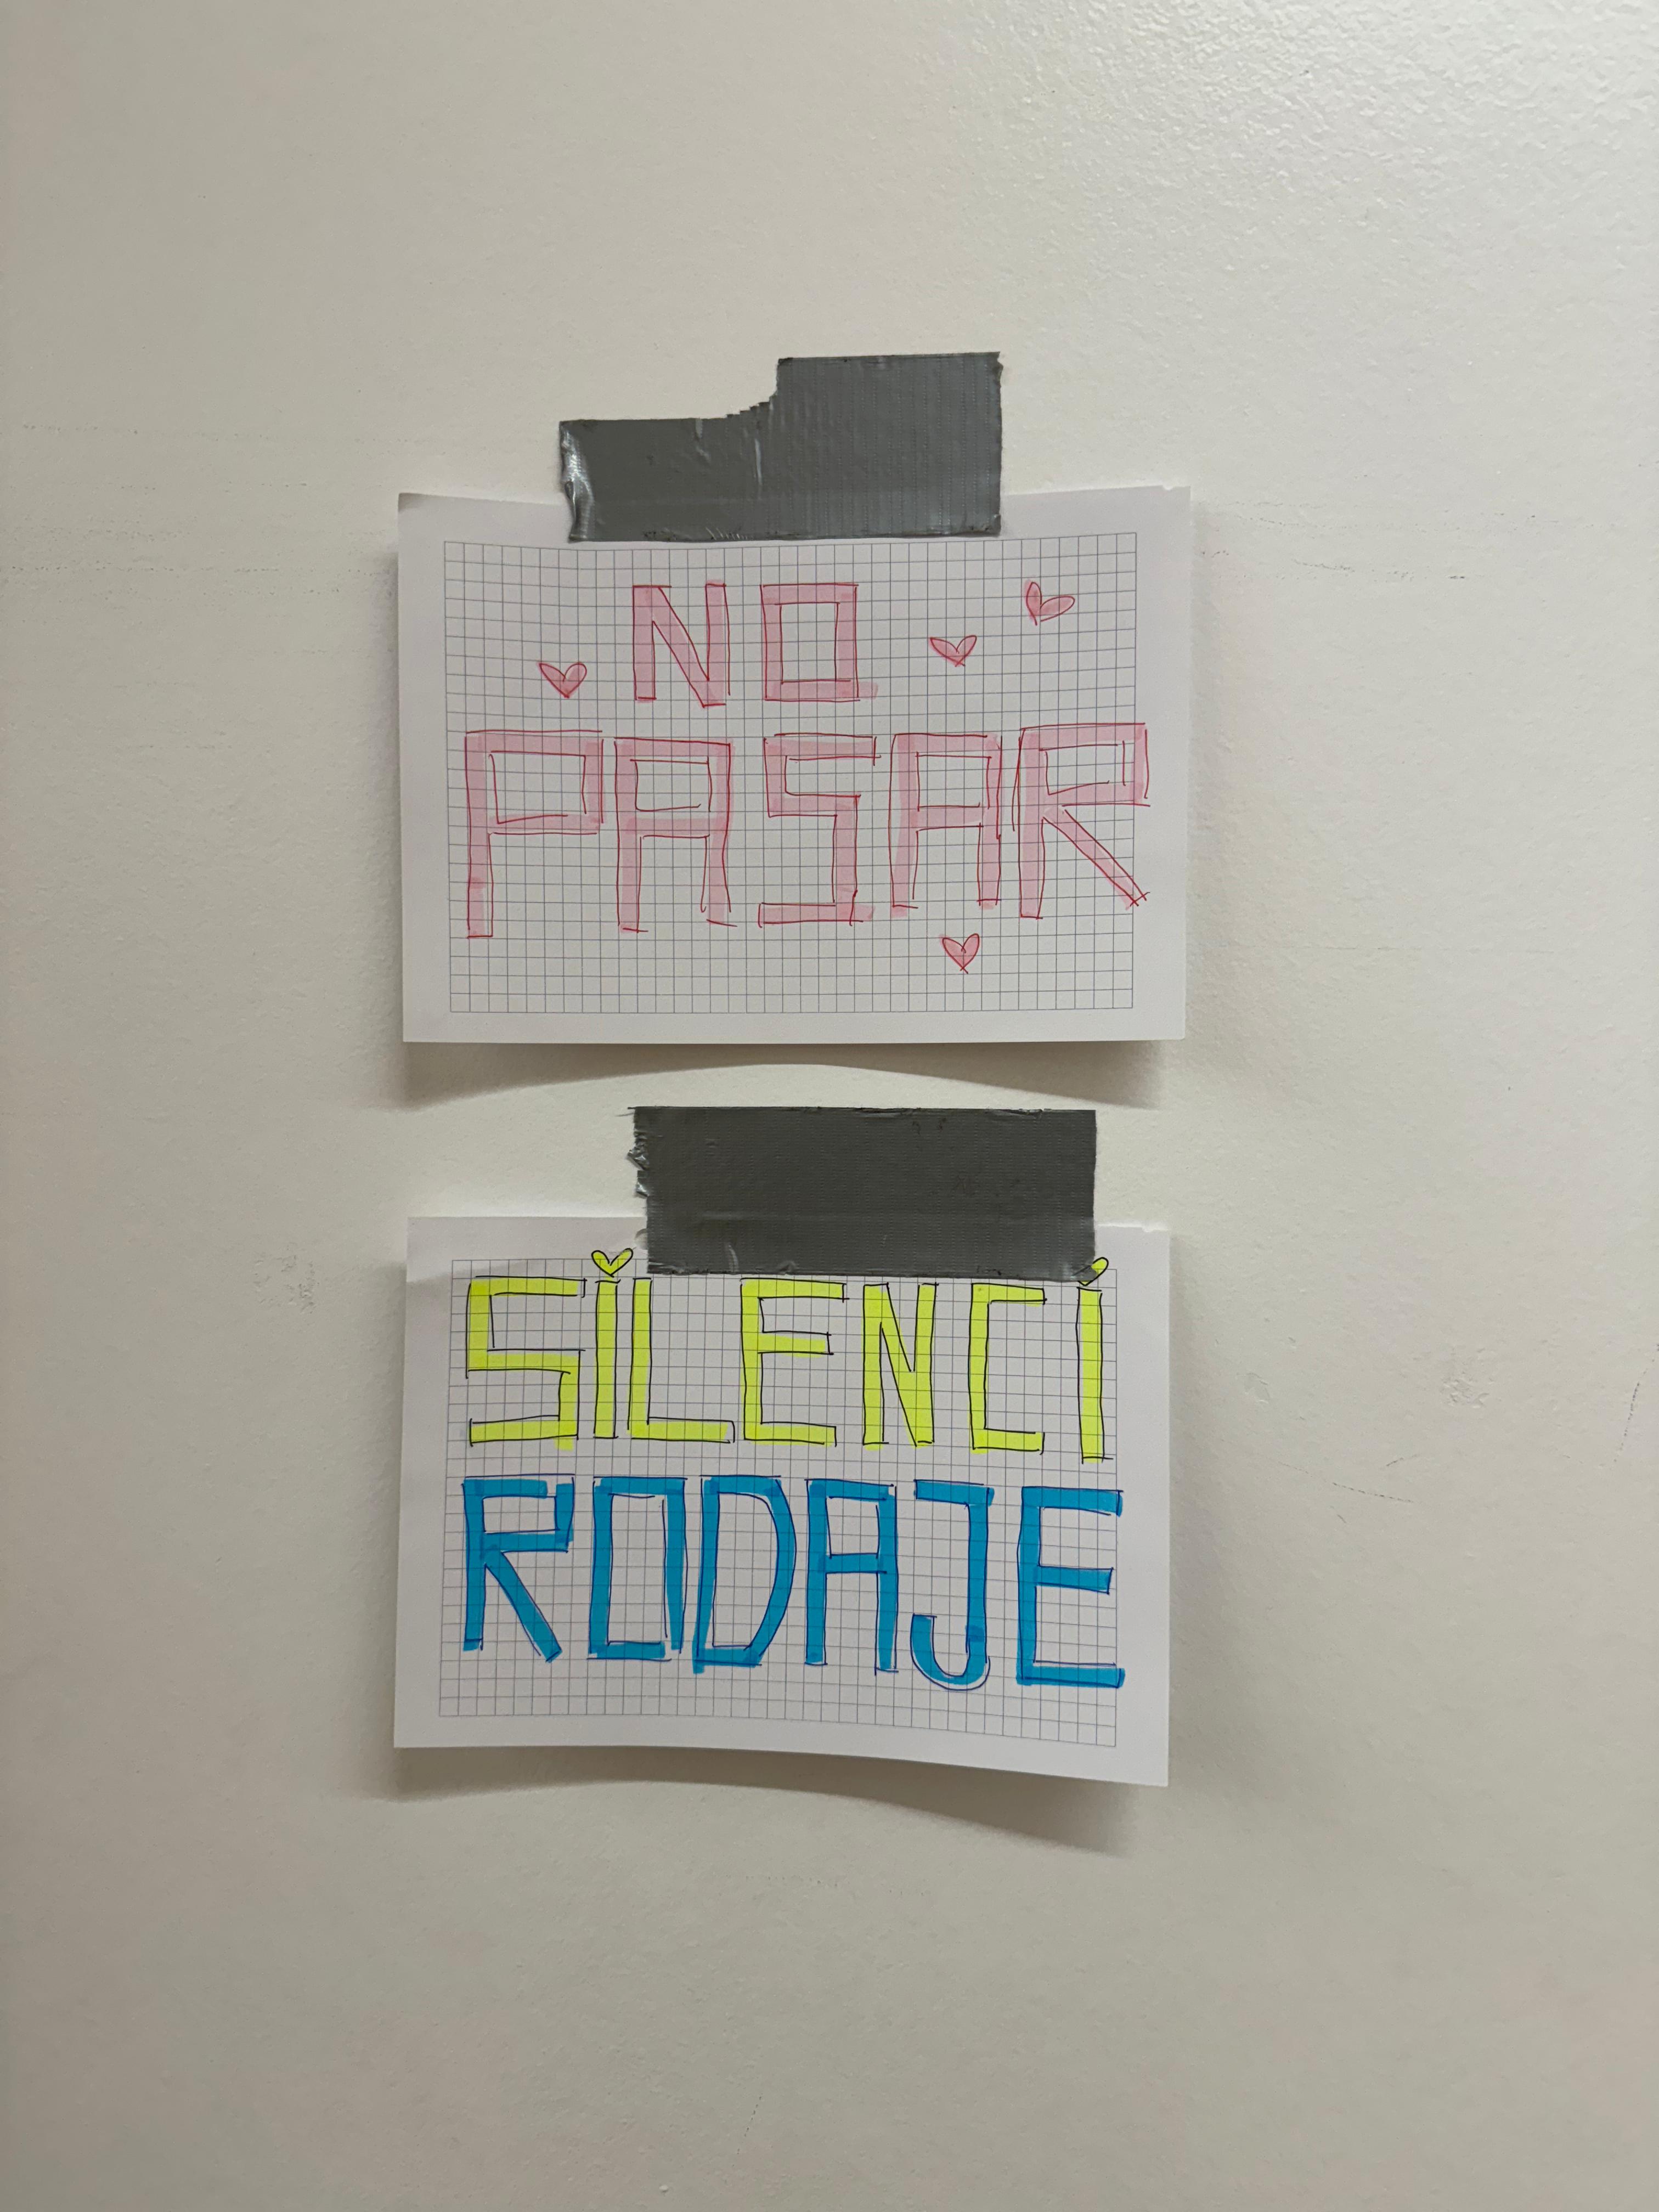 NO
PASAR
SiLENCi
RODAJE